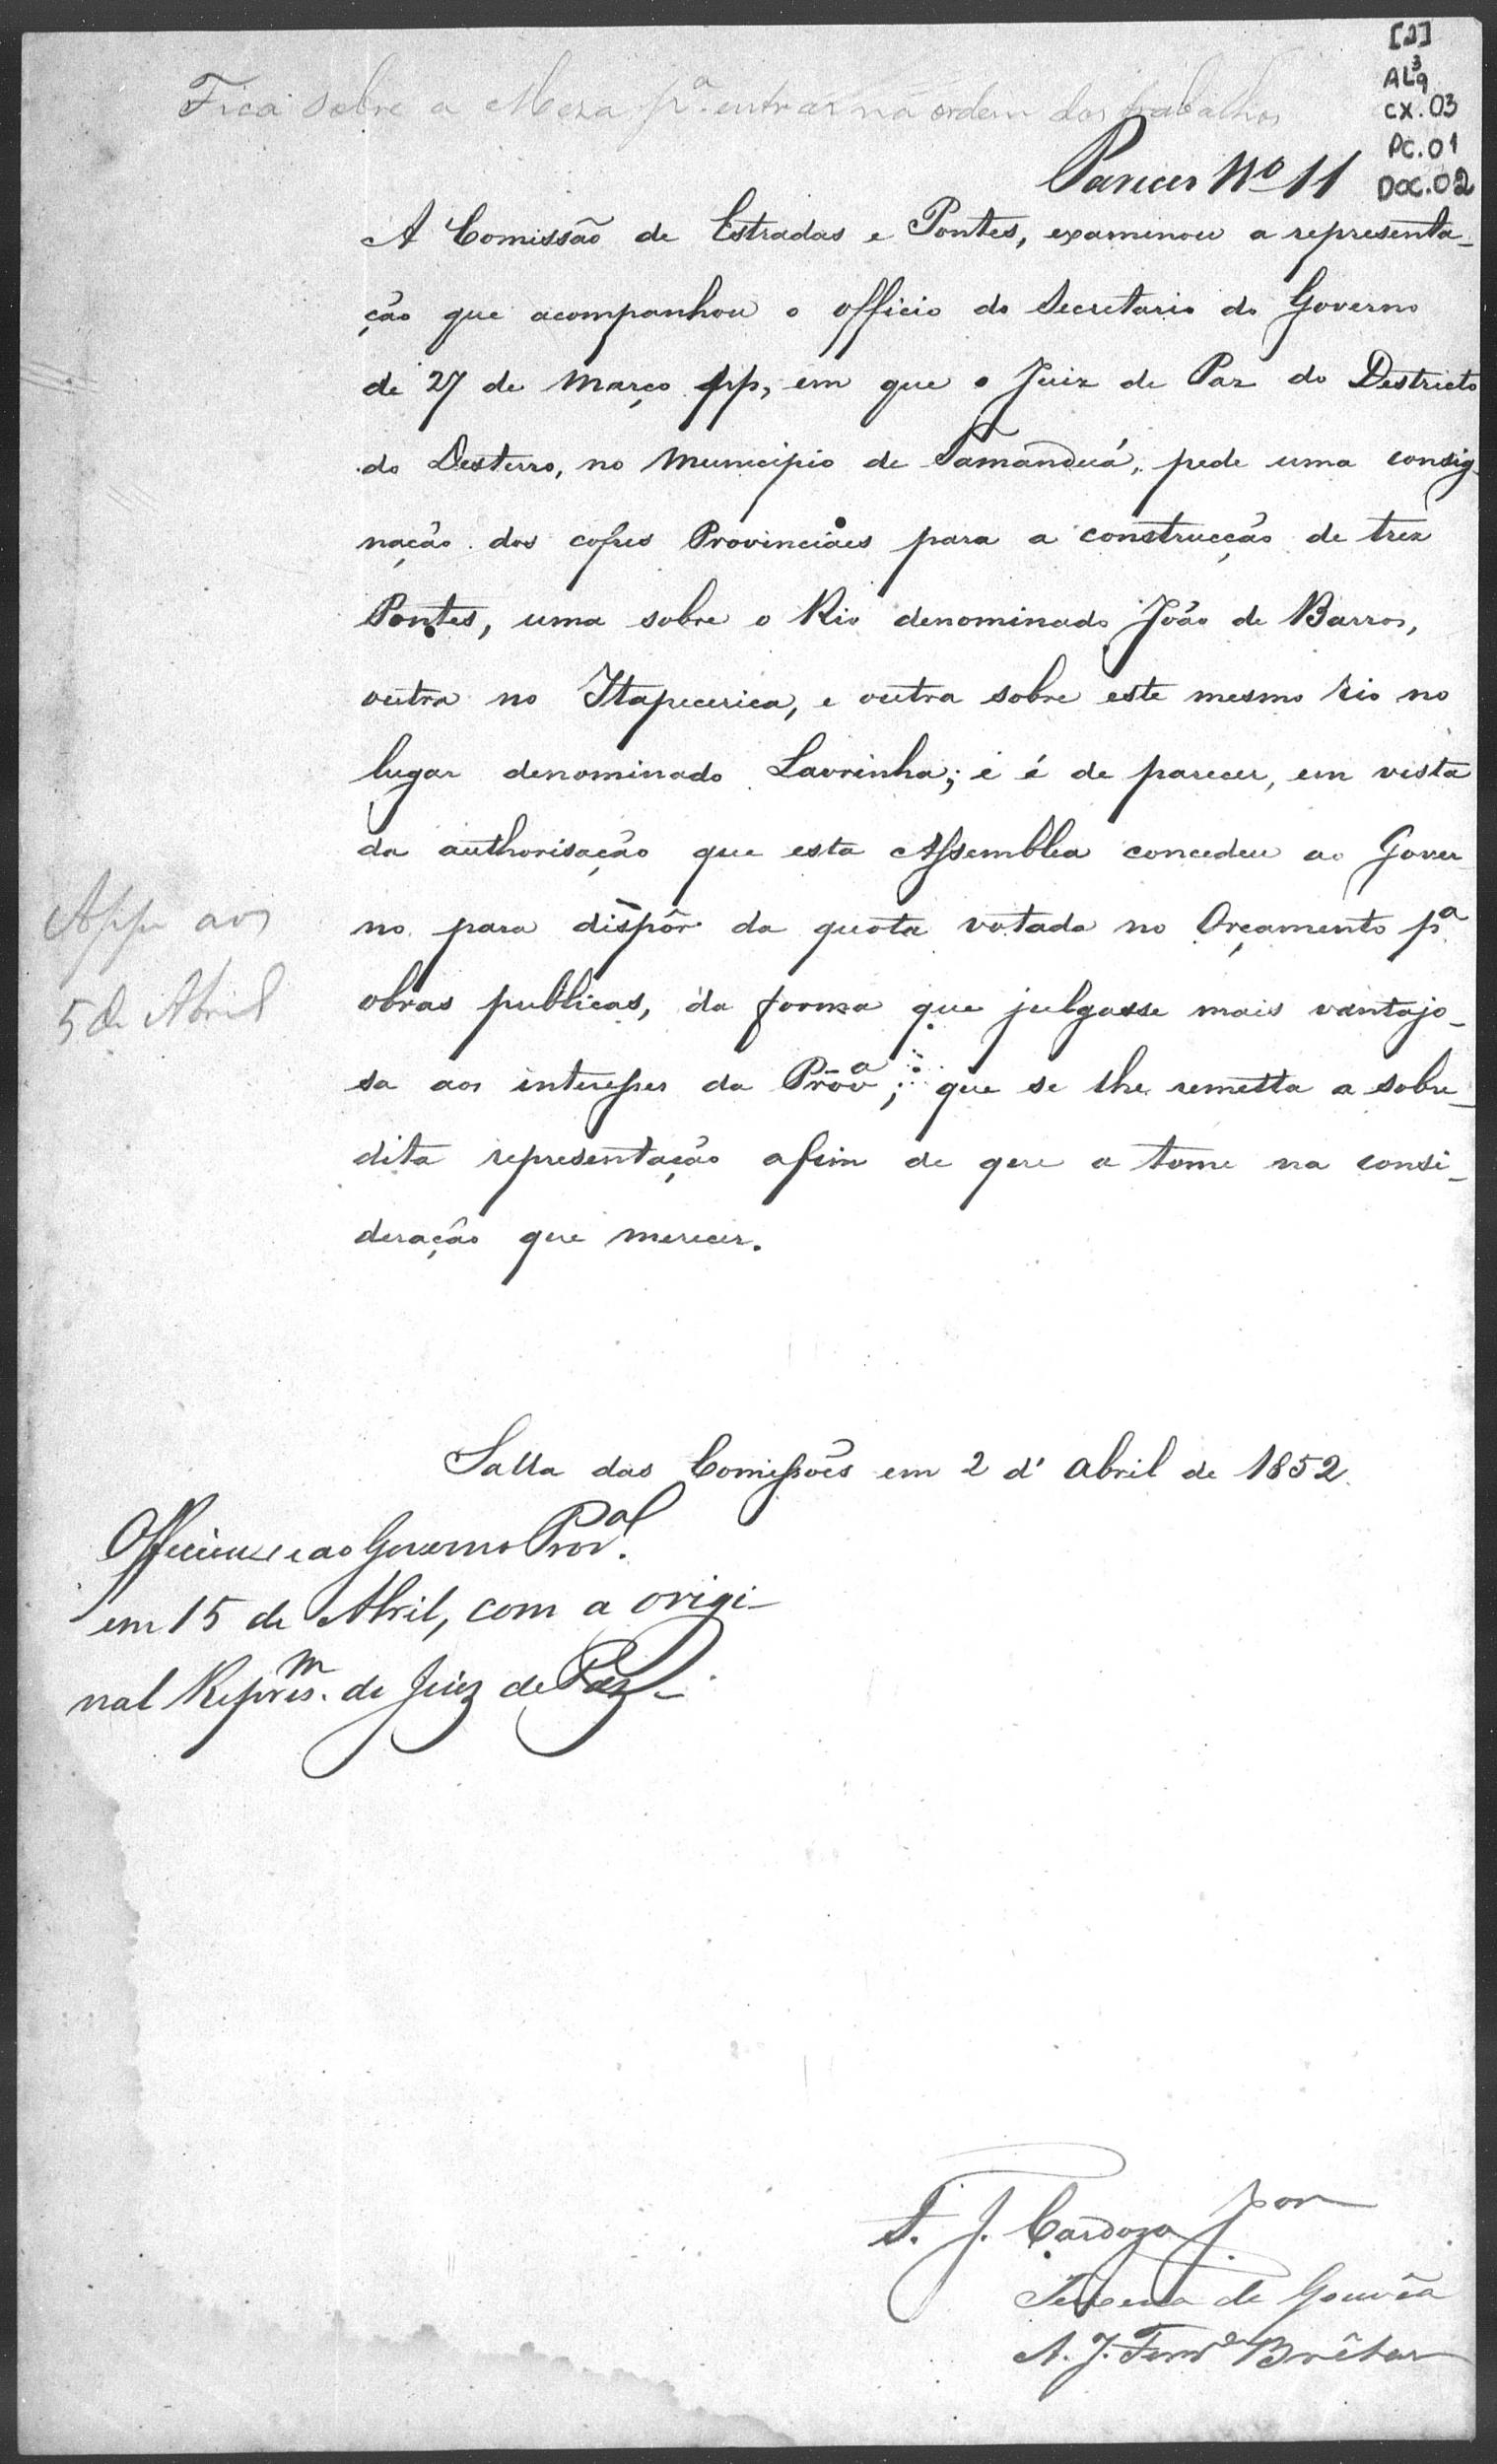 [2]
AL³9
CX.03
PC.01
DOC.02
Fica sobre a Meza pª entrar na ordem dos trabalhos
Parecer Nº 11
A Comissão de Estradas e Pontes, examinou a representa-
ção que acompanhou o officio do Secretario do Governo
de 27 de Março pp, em que o Juiz de Paz do Destricto
do Desterro, no Municipio de Tamanduá, pede uma consig-
nação dos cofres Provinciáes para a construcção de trez
Pontes, uma sobre o Rio denominado João de Barros,
outra no Itapecerica, e outra sobre este mesmo rio no
lugar denominado Lavrinha; e é de parecer, em vista
da authorisação que esta Assemblea concedeu ao Gover
no para dispôr da quota votada no Orçamento pª
obras publicas, da forma que julgasse mais vantajo-
sa aos interesses da Provª; que se lhe remetta a sobre-
dita representação afim de que a tome na consi-
deração que merecer.
App aos
5 de Abril
Salla das Comissões em 2 d' Abril de 1852.
Officiou-se ao Governo Prov.al
em 15 de Abril, com a origi-
nal Repres.m do Juiz de Paz-
J. Cardozo Jor
Teixeira de Gouvêa
A. J. Ferr Brêtas